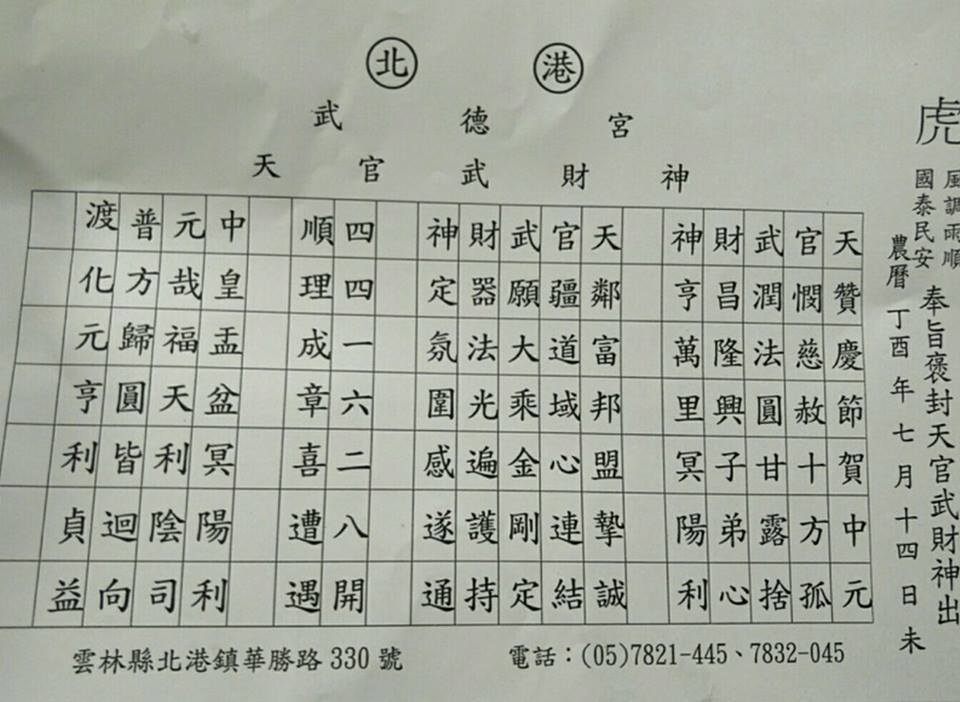 北港
武德宮
天官武財神
虎
風調雨順
國泰民安
奉旨褒封天官武財神出
農曆丁酉年七月十四日未
天贊慶節賀中元
官憫慈赦十方孤
武潤法圓甘露捨
財昌隆興子弟心
神亨萬里冥陽利
天鄰富邦盟摯誠
官疆道域心連結
武願大乘金剛定
財器法光遍護持
神定氛圍感遂通
四四一六二八開
順理成章喜遭遇
中皇盂盆冥陽利
元哉福天利陰司
普方歸圓皆迴向
渡化元亨利貞益
雲林縣北港鎮華勝路330號
電話：(05)7821-445、7832-045